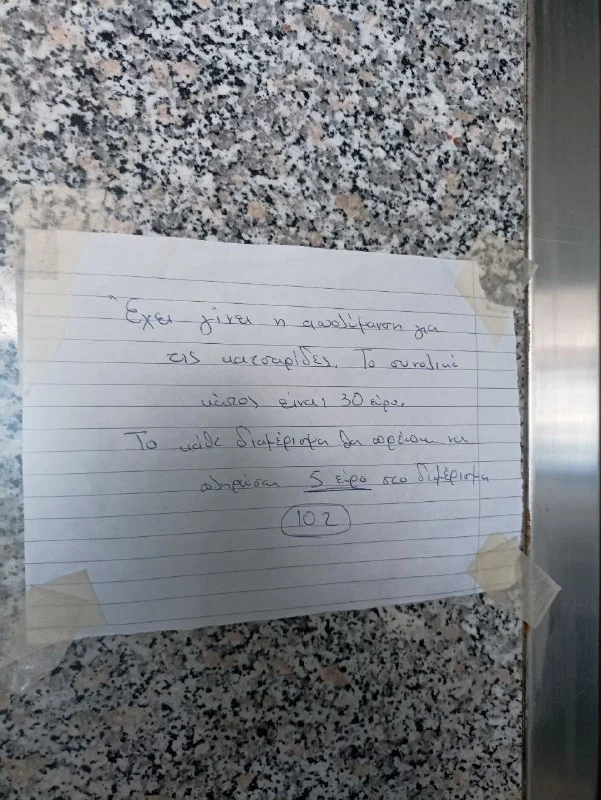 Έχει γίνει η απολύμανση για
τις κατσαρίδες. Το συνολικό
κόστος είναι 30 ευρω.
Το κάθε διαμέρισμα θα πρέπει να
πληρώσει 5 ευρο στο διμέρισμα
102